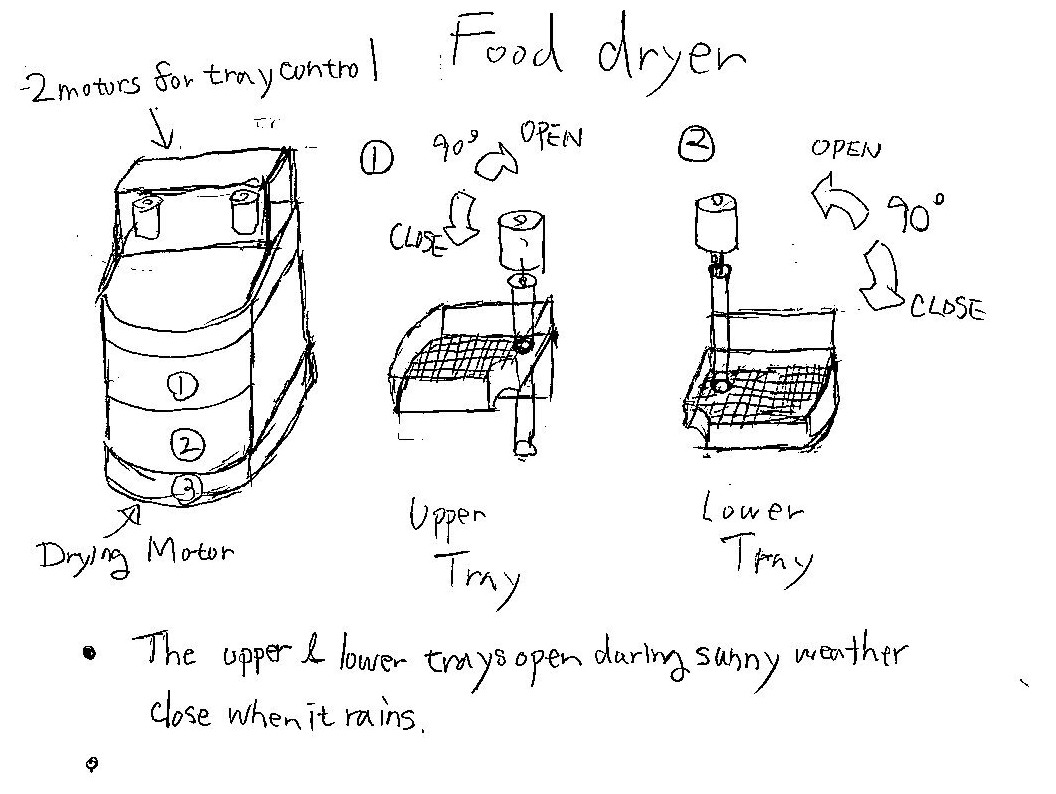 Food dryer
-2 motors for tray control
① 90° OPEN
CLOSE
② OPEN
90°
CLOSE
①
②
③
Drying Motor
Upper
Tray
Lower
Tray
• The upper & lower trays open during sunny weather
close when it rains.